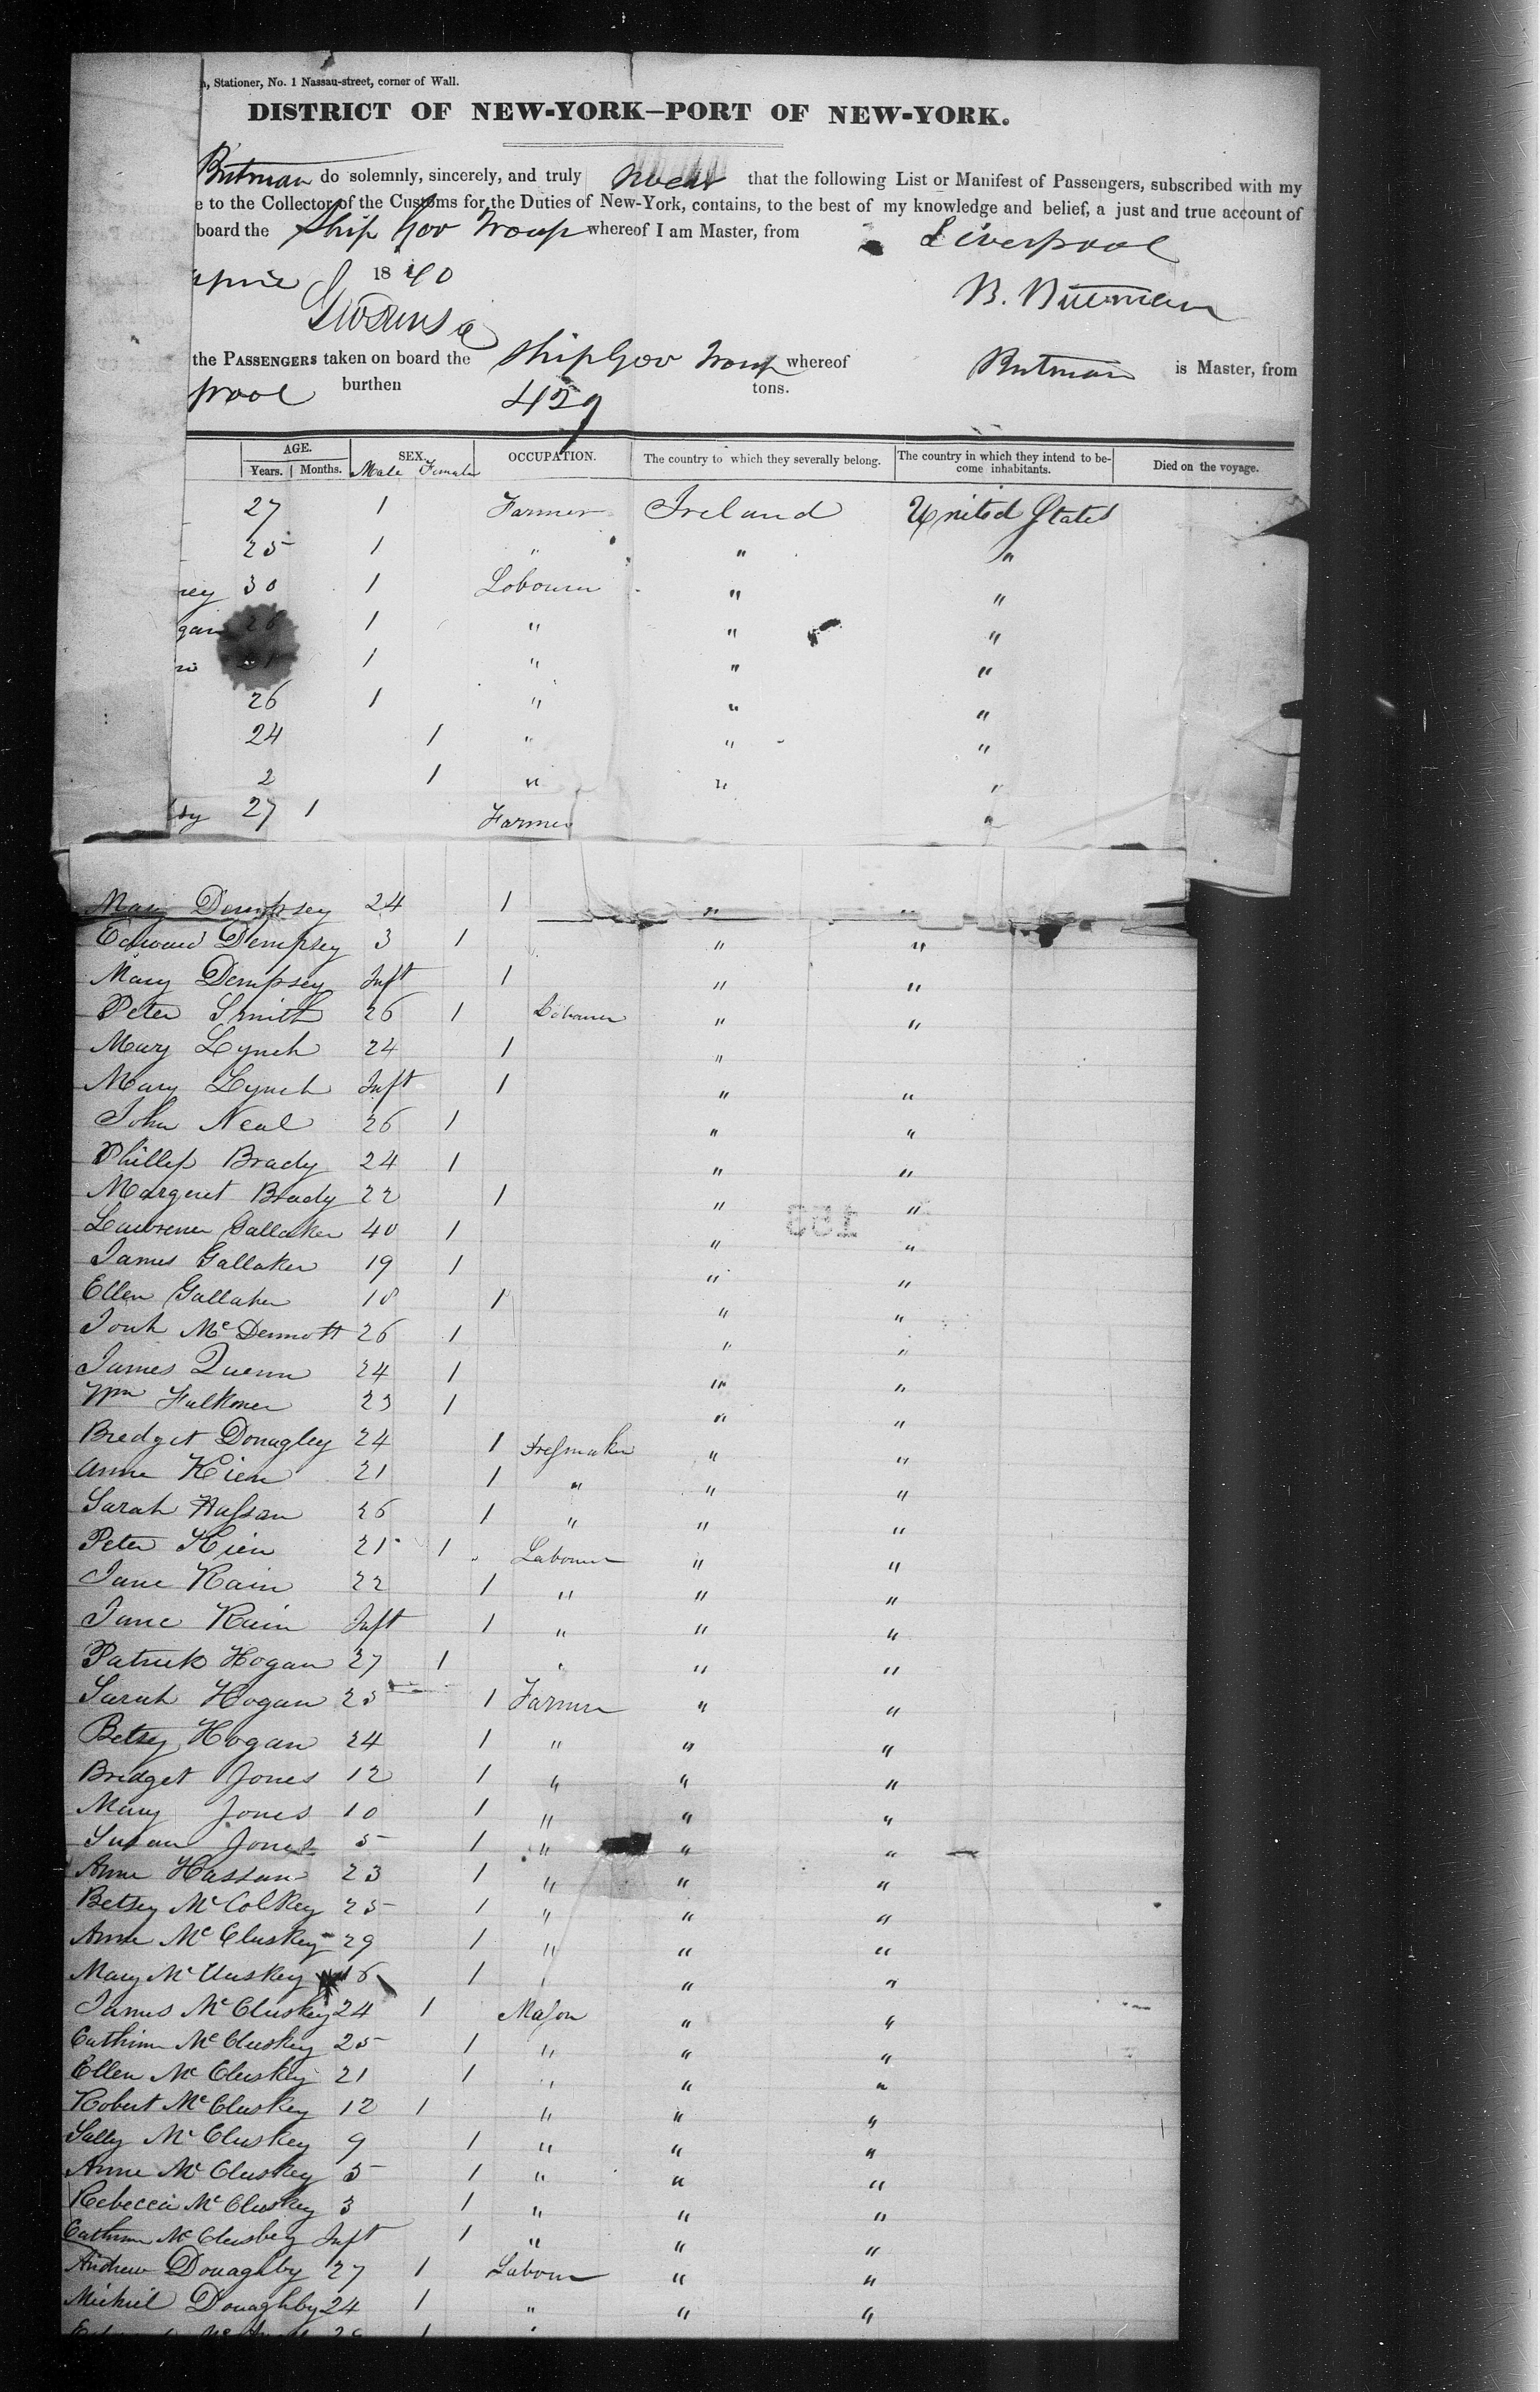 n, Stationer, No. 1 Nassau-street, corner of Wall.
DISTRICT OF NEW-YORK—PORT OF NEW-YORK.
Butman do solemnly, sincerely, and truly swear that the following List or Manifest of Passengers, subscribed with my
e to the Collector of the Customs for the Duties of New-York, contains, to the best of my knowledge and belief, a just and true account of
board the Ship Gov Troup whereof I am Master, from Liverpool
1840
B. Butman
the PASSENGERS taken on board the Ship Gov Troup whereof Butman is Master, from
pool burthen 429 tons.
AGE. SEX. OCCUPATION. The country to which they severally belong. The country in which they intend to become inhabitants. Died on the voyage.
Years. Months. Male Female
27 1 Farmer Ireland United States
25 1 " " "
rey 30 1 Labourer " "
gan 26 1 " " "
1 " " "
26 1 " " "
24 1 " " "
2 1 " " "
27 1 Farmer "
Mary Dempsey 24 1 " "
Edward Dempsey 3 1 " "
Mary Dempsey Inft 1 " "
Peter Smith 26 1 Labourer " "
Mary Lynch 24 1 "
Mary Lynch Inft 1 " "
John Neal 26 1 " "
Phillip Brady 24 1 " "
Margeret Brady 22 1 " "
Lawrence Gallaker 40 1 " "
James Gallaker 19 1 " "
Ellen Gallaher 18 1 " "
McDermott 26 1 " "
James Quenn 24 1 " "
Wm Falkoner 23 1 " "
Bredget Donagley 24 1 Dressmaker " "
Anne Kien 21 1 " " "
Sarah Hassan 26 1 " " "
Peter Kien 21 1 Labourer " "
Jane Kain 22 1 " " "
Jane Kain Inft 1 " " "
Patrick Hogan 27 1 " " "
Sarah Hogan 25 1 Farmer " "
Betsy Hogan 24 1 " " "
Bridget Jones 12 1 " " "
Mary Jones 10 1 " " "
Susan Jones 5 1 " " "
Anne Hassan 23 1 " " "
Betsey McColkey 25 1 " " "
Anne McCluskey 29 1 " " "
Mary McCluskey 16 1 " " "
James McCluskey 24 1 Mason " "
Cathrine McCluskey 25 1 " " "
Ellen McCluskey 21 1 " " "
Robert McCluskey 12 1 " " "
Sally McCluskey 9 1 " " "
Anne McCluskey 5 1 " " "
Rebecca McCluskey 3 1 " " "
Cathrine McCluskey Inft 1 " " "
Andrew Donaghby 27 1 Labourer " "
Michiel Donaghby 24 1 " " "